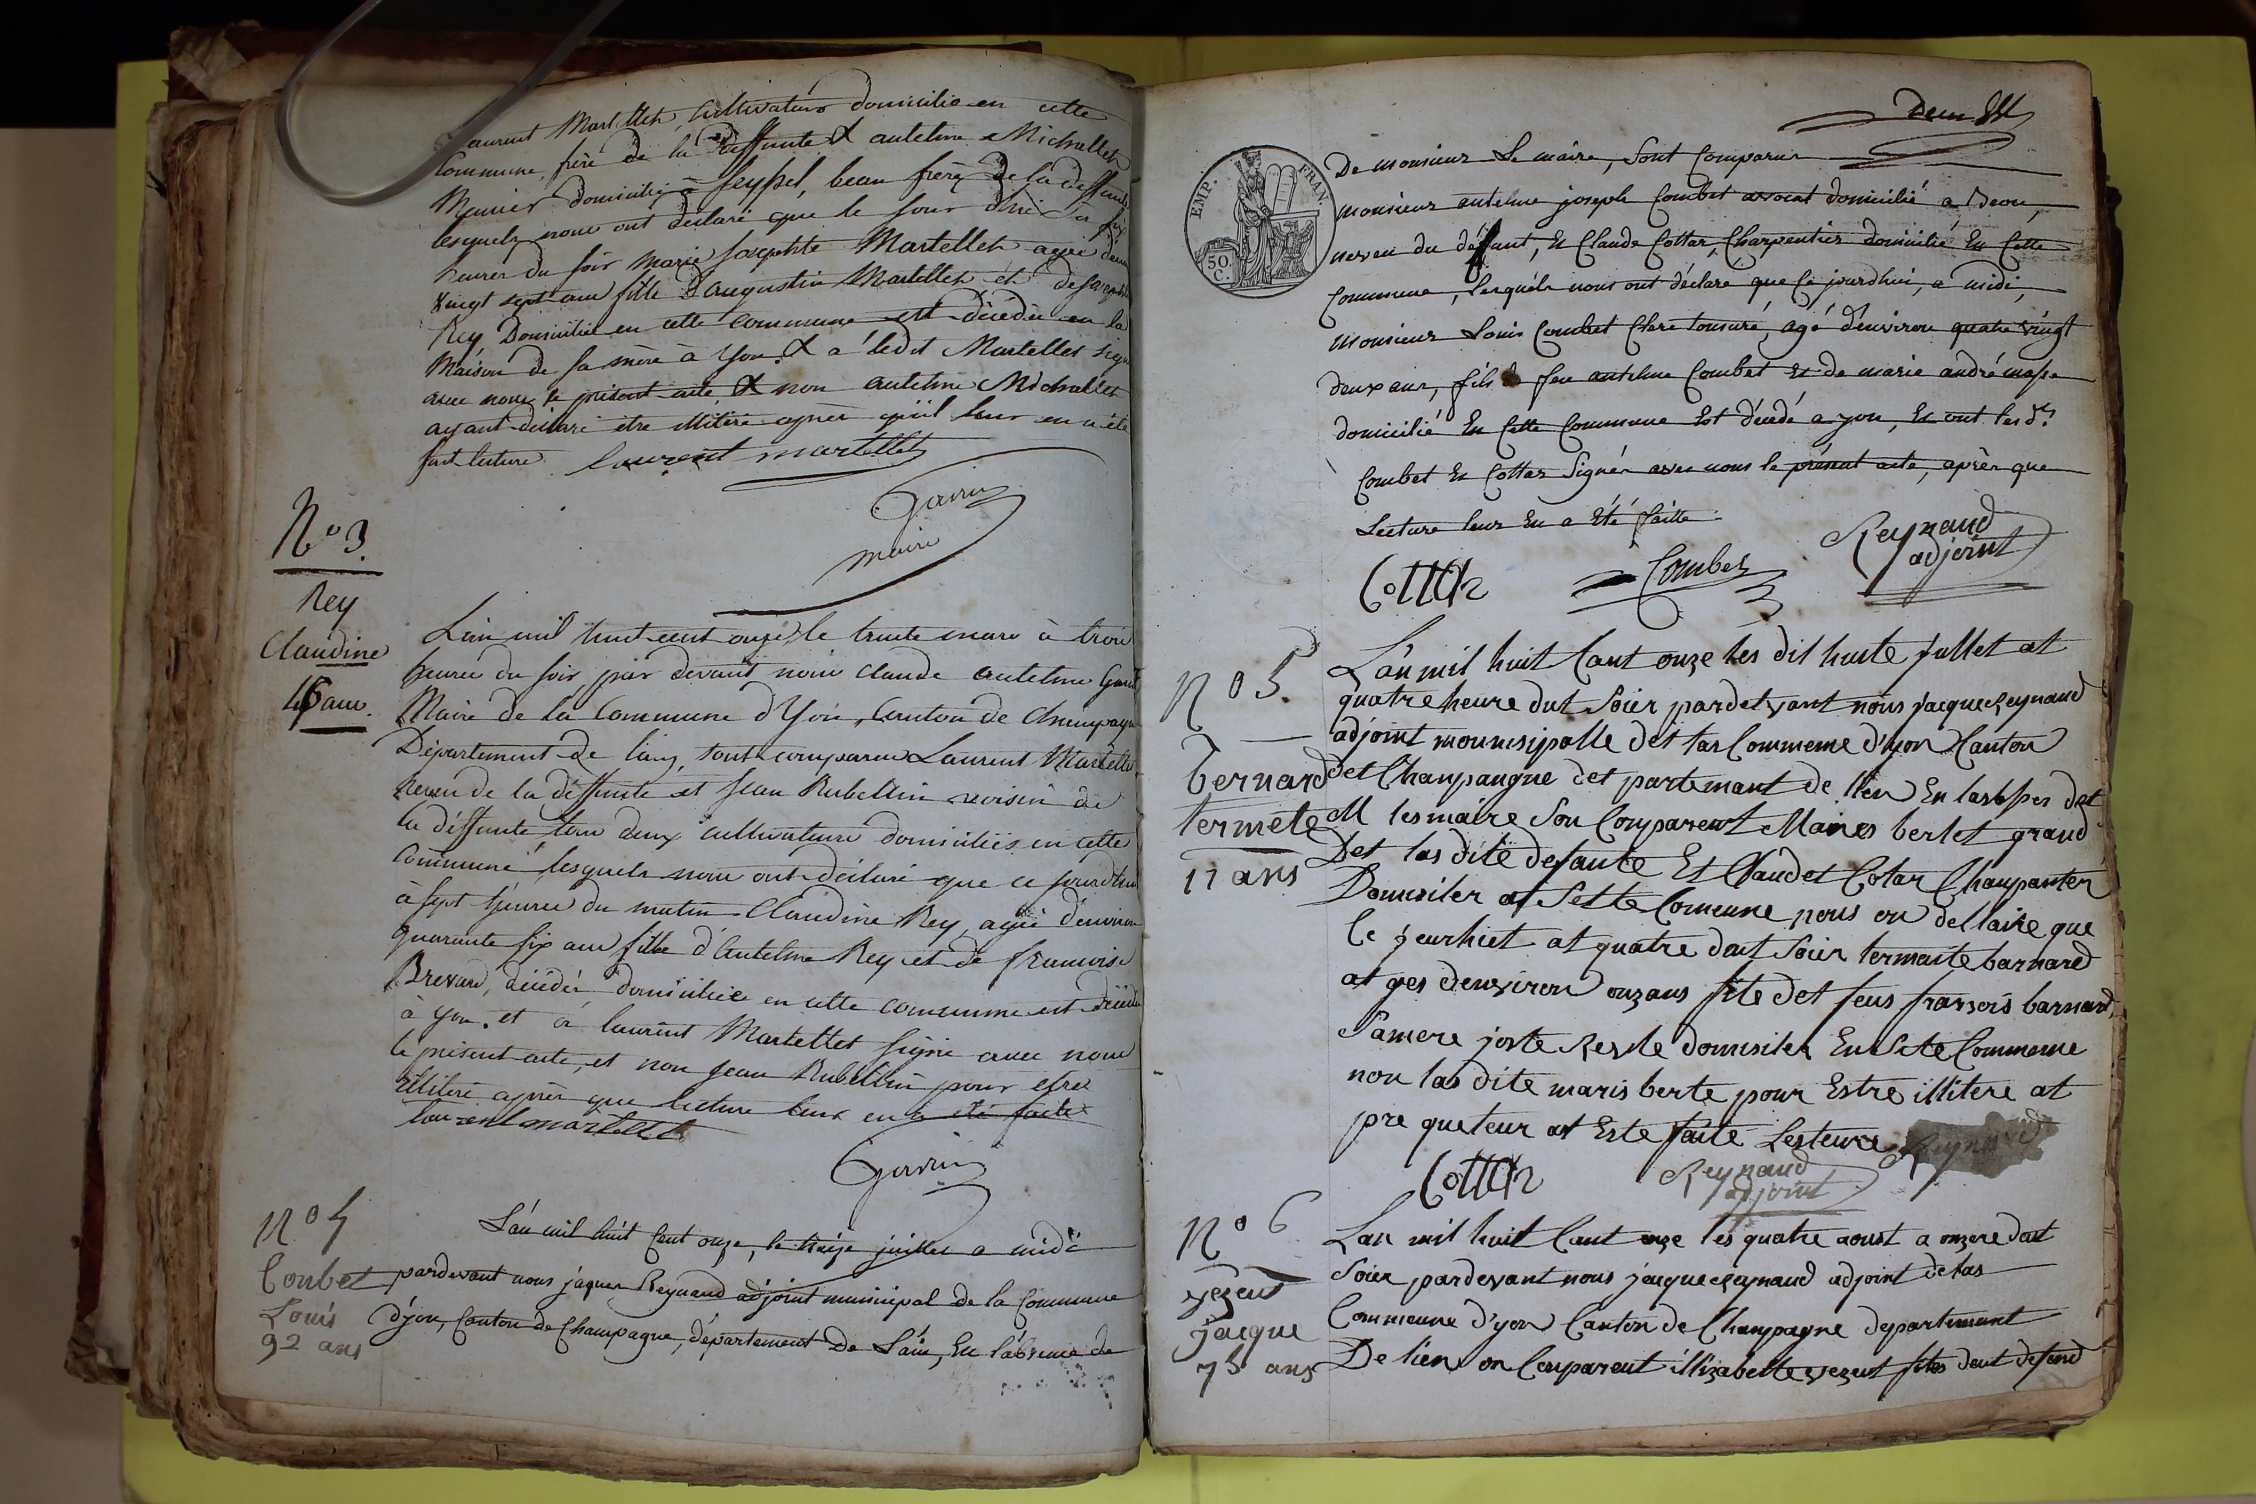 Laurent Martellet, Cultivateur domicilié en cette
Commune, frère de la deffunte & antelme Michallet
Meunier domicilié à Seyssel, beau frère de la deffunte
lesquels nous ont déclaré que le jour d'hier à six
heures du soir Marie Josephte Martellet agée d'environ
vingt sept ans fille d'augustin Martellet et de Josephte
Rey Domiciliée en cette commune est décédée en la
Maison de sa mère à Yon. & a ledit Martellet signé
avec nous le présent acte & non antelme Michallet
ayant déclaré être illitéré après qu'il leur en a été
fait lecture. laurent martellet
Gavrin
maire
N° 3.
Rey
Claudine
46 ans.
L'an mil huit cent onze, le trente mars à trois
heures du soir par devant nous Claude Antelme
Maire de la Commune d'Yon, Canton de Champagne
Département de l'ain, sont comparus Laurent Martellet
neveu de la deffunte et Jean Rubellin voisin de
la deffunte tous deux cultivateurs domiciliés en cette
Commune lesquels nous ont déclaré que ce jourdhui
à sept heures du matin Claudine Rey, agée d'environ
quarante six ans fille d'Antelme Rey et de francoise
décédés, domiciliée en cette commune est décédée
à Yon. et a laurent Martellet signé avec nous
le présent acte, et non Jean Rubellin pour etre
illitéré après que lecture leur en a été faite
laurent martellet
Gavrin
N° 4
Conbet
Louis
92 ans
L'an mil huit Cent onze, le treize juillet a midi
pardevant nous jaques Reynaud adjoint municipal de la Commune
d'yon, Canton de Champagne, département De L'ain, En l'absence de
deux
EMP. FRAN.
50 C.
De monsieur Le maire, sont Comparus
monsieur antelme joseph Combet avocat domicilié a Deon,
neveu du défunt, Et Claude Cottar, Charpentier domicilié En Cette
Commune, lesquels nous ont déclaré que Ce jourdhui, a midi,
monsieur Louis Combet Clerc tonsuré, agé d'environ quatre vingt
douze ans, fils de feu antelme Combet Et de marie andrémasse
domicilié En Cette Commune Est décédé a yon, Et ont les d.ts
Combet Et Cottar Signés avec nous le présent acte, après que
Lecture leur En a Eté faitte.
Cottar Combet Reynaud
adjoint
N° 5
bernard
termete
11 ans
L'an mil huit Cant onze les dit huite jullet at
quatre heure dut Soier pardetvant nous jacque Reynaud
adjoint mounisipalle det las Commeme d'yon Canton
det Chanpangne det partemant de l'ien En lasbses det
M les maire Son Comparent Maries berlet grand
Det las dite defante Et Claudet Cotar Chanpanter
Domisiler at Sette Comeune nous on dellaire que
Ce jeurhiet at quatre dout Soier termaite barnard
at ges denviron onzans file det feus fransois barnard,
Samere joste Reste domisiler En Sete Commeme
non las dite maris berte pour Estre illitere at
pre queteur at Este faite Lesteure Reynaud
Cottar Reynaud
adjoint
N° 6
vezeut
jacque
75 ans
Lan mil huit Cant onze les quatre aoust a onzere dout
Soier pardevant nous jacque Reynaud adjoint detas
Commeune d'yon Canton de Chanpagne departemant
De lien on Comparent illizabette vezeut files deut defond